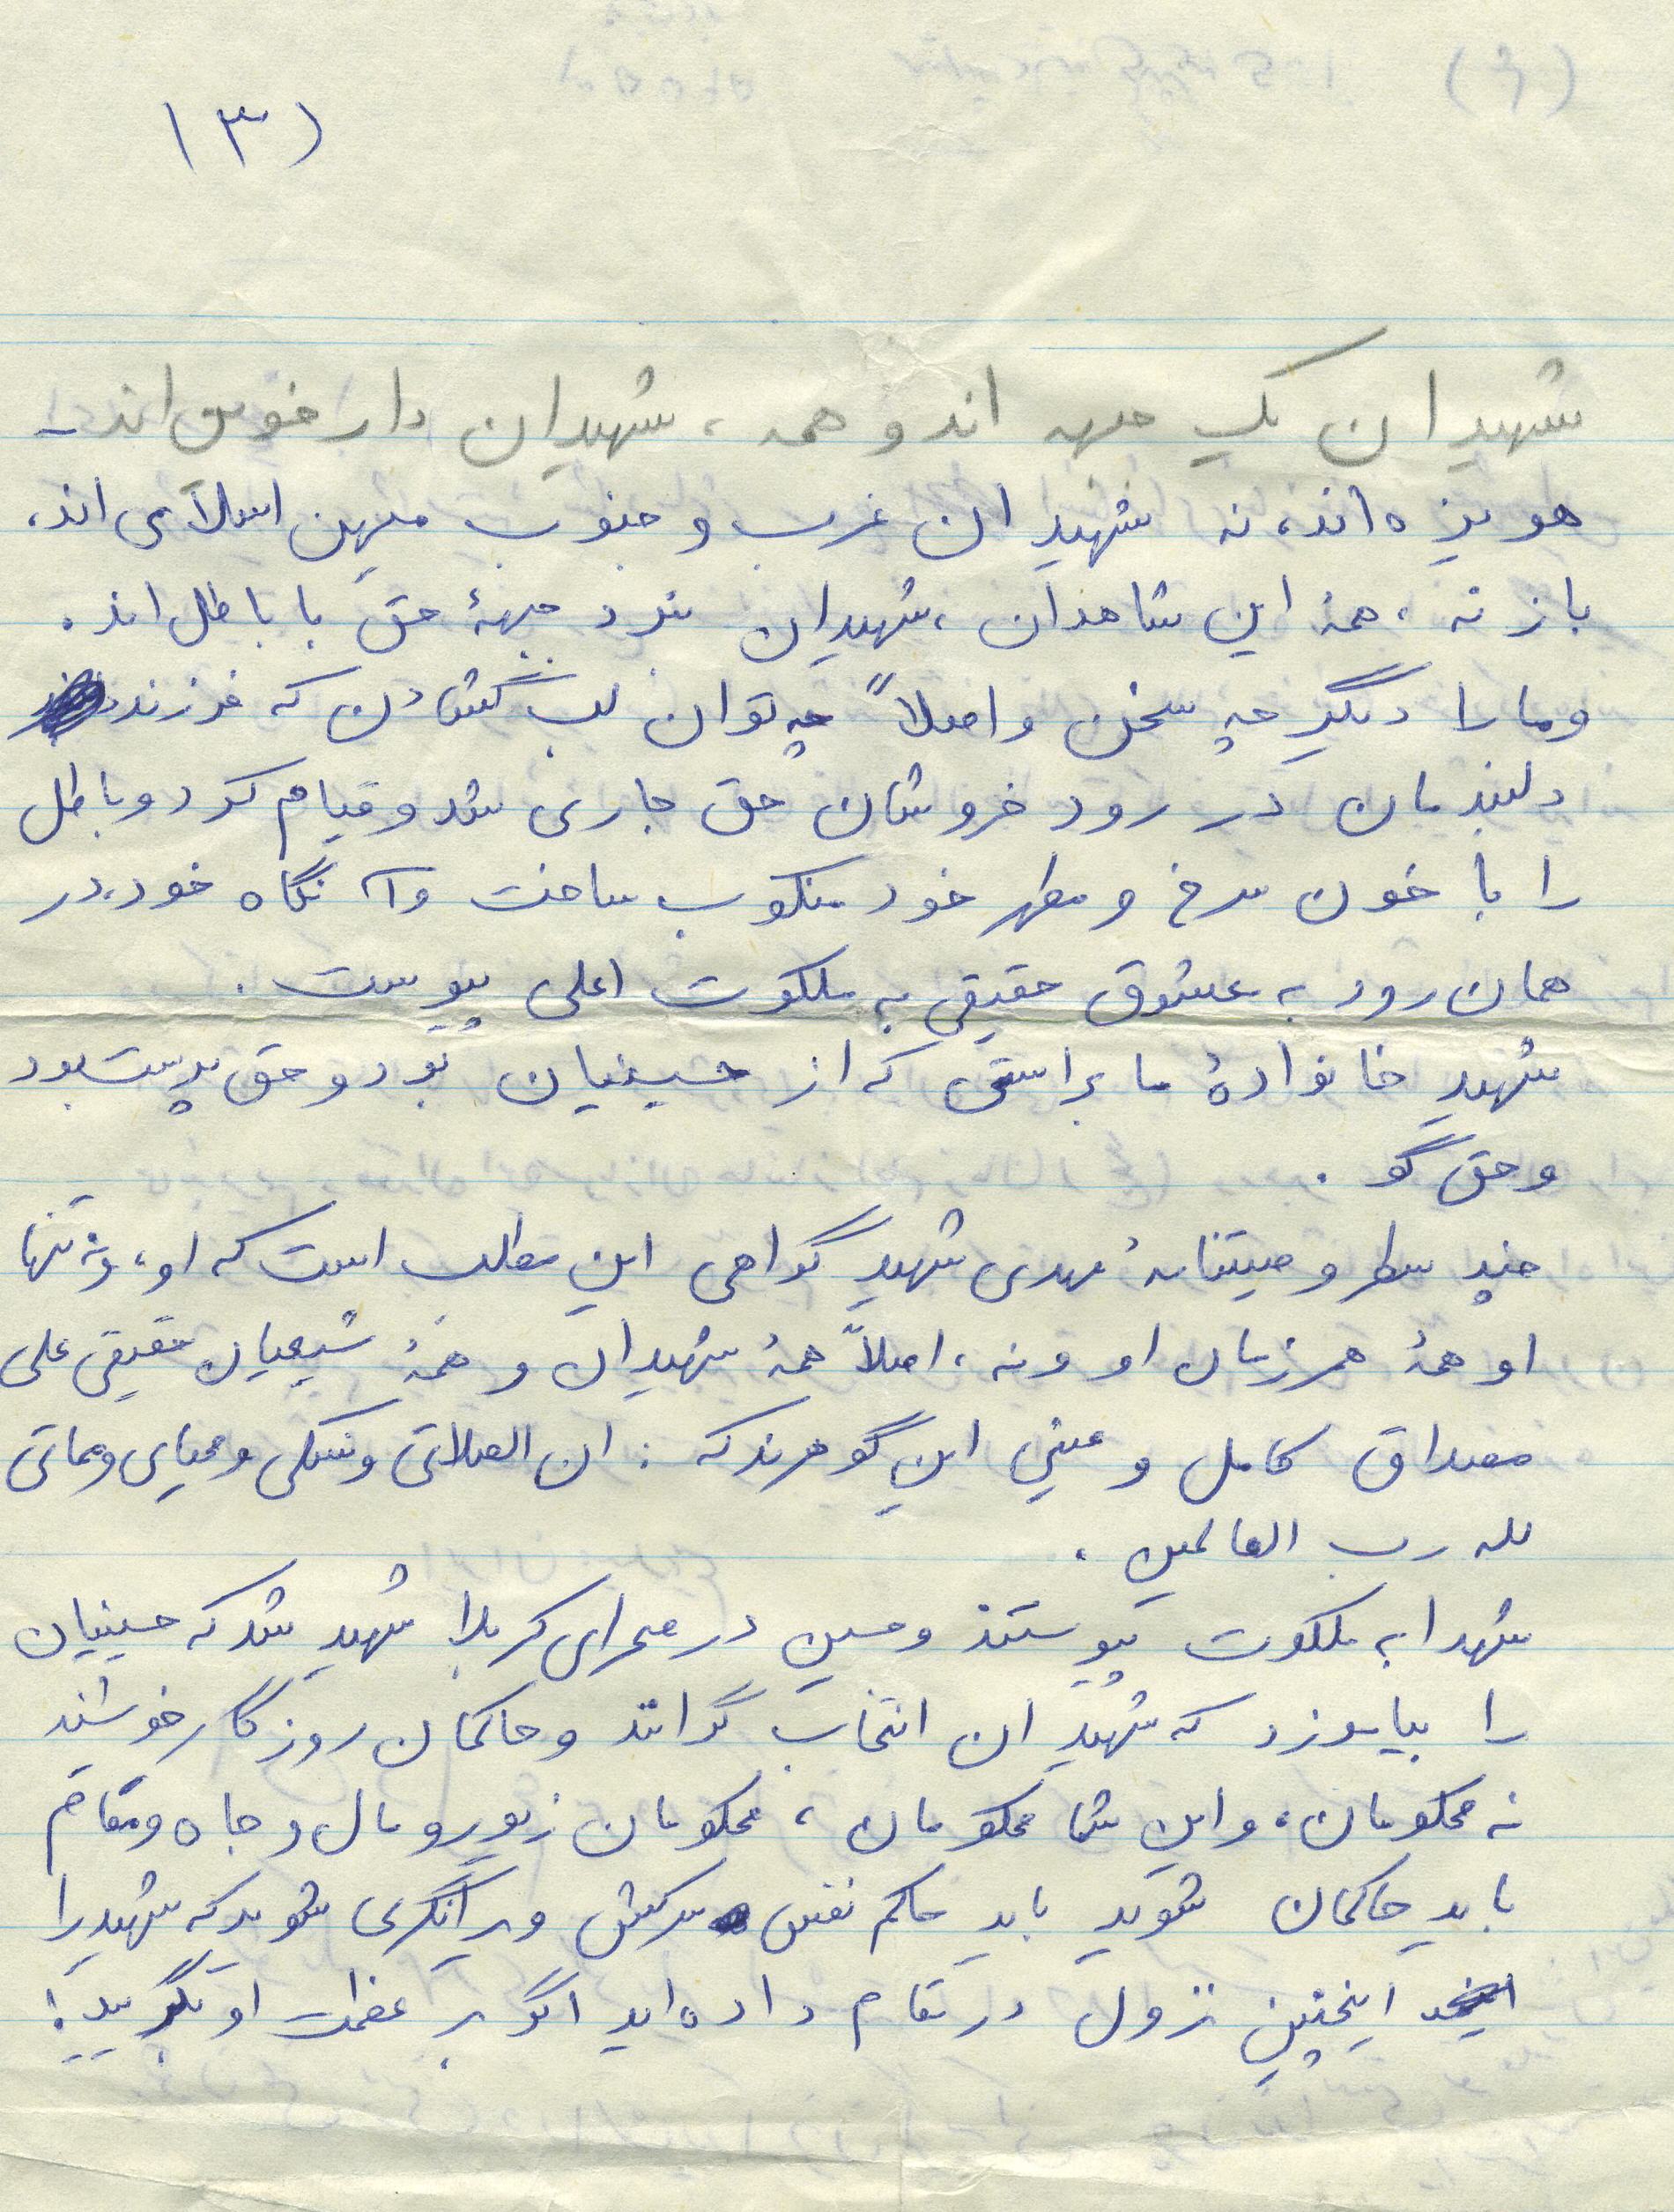 (۳)
شهیدان یک جبهه اند و همه، شهیدان دار خوین اند ـ
هویزه اند، نه شهیدان غرب و جنوب میهن اسلامی اند،
باز نه، همهٔ این شاهدان، شهیدان نبرد جبههٔ حق با باطل اند.
و ما را دیگر چه سخن و اصلاً چه توان لب گشادن که فرزند
دلبندمان در رود خروشان حق جاری شد و قیام کرد و باطل
را با خون سرخ و مطهر خود منکوب ساخت و آنگاه خود، در
همان رود به عشوق حقیقی به ملکوت اعلی پیوست.
شهید خانوادهٔ ما براستی که از حسینیان بود و حق پرست بود
و حق گو.
چند سطر وصیتنامهٔ مهدی شهید گواهی این مطلب است که او، و نه تنها
او همهٔ همرزمان او و نه، اصلاً همهٔ شهیدان و همهٔ شیعیان حقیقی علی
مصداق کامل و عینی این گوهرند که : ان الصلاتی ونسکی ومحیای ومماتی
لله رب العالمین.
شهدا به ملکوت پیوستند و حسین در صحرای کربلا شهید شد که حسینیان
را بیاموزد که شهیدان انتخاب گرانند و حاکمان روزگار خویشند
نه محکومان، و این شما محکومان، محکومان زیور و مال و جاه و مقام
باید حاکمان شوید باید حاکم نفس سرکش و ویرانگری شوید که شهید را
اینچنین نزول در مقام داده اید اگر بر عظمت او بگریید!